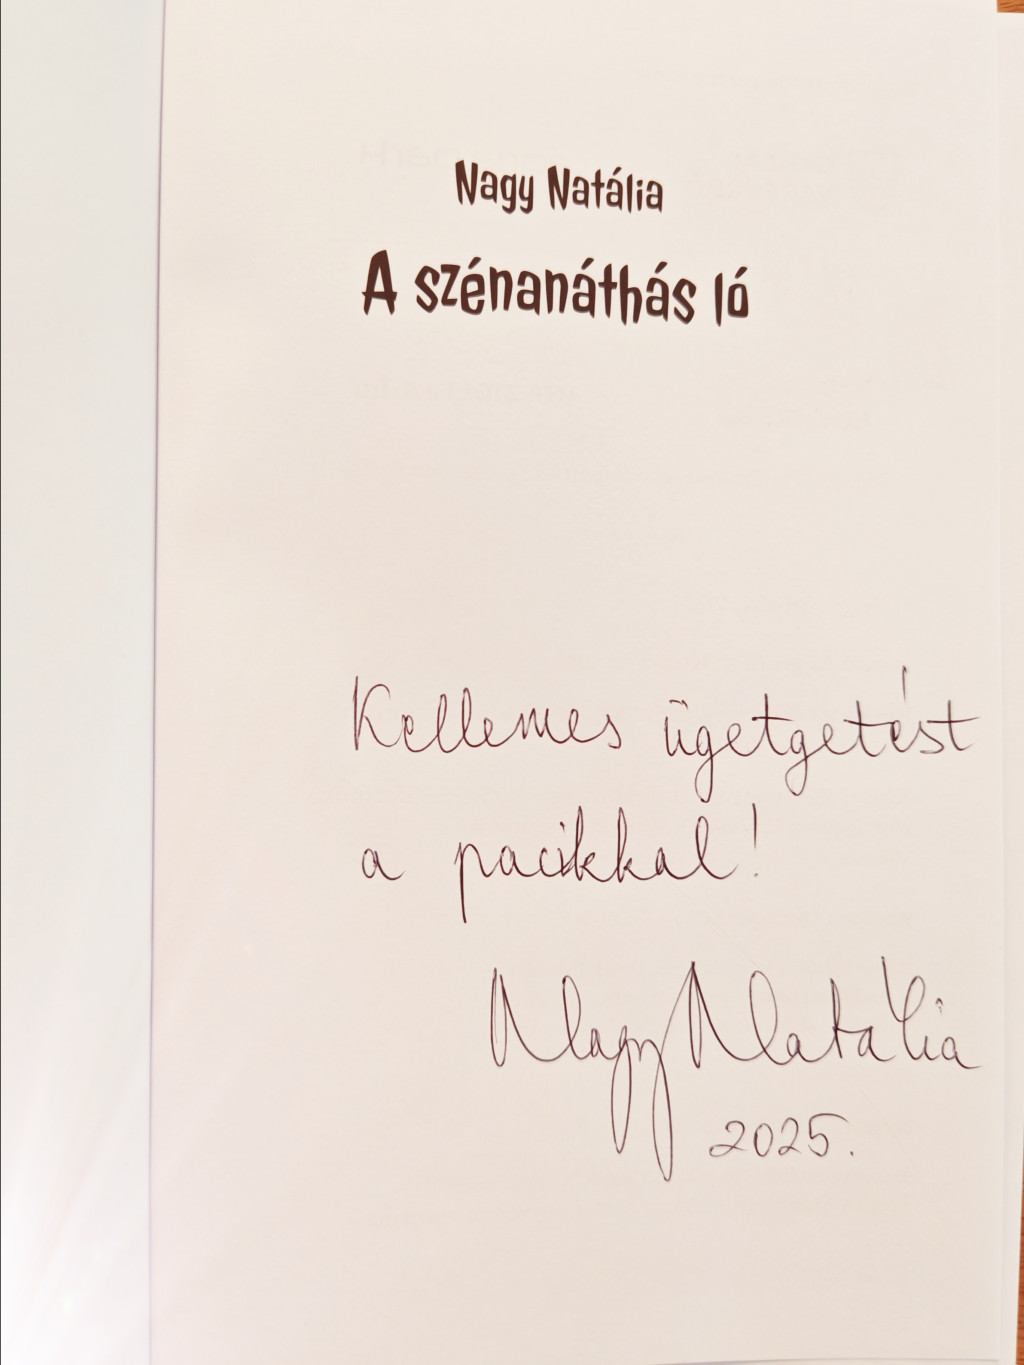 Nagy Natália
A szénanáthás ló
Kellemes ügetgetést
a pacikkal!
Nagy Natália
2025.